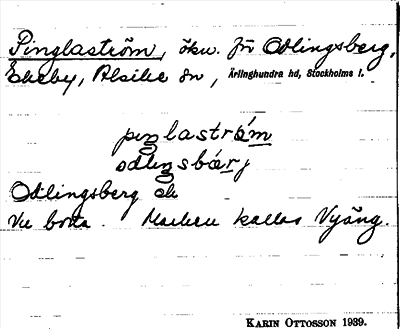 Pinglaström, ökn. för Odlingsberg,
Ekeby, Alsike sn, Ärlinghundra hd, Stockholms l.
piŋlaström
odliŋsbärj
Odlingsberg
borta. Marken kallas Vyäng.
KARIN OTTOSSON 1939.